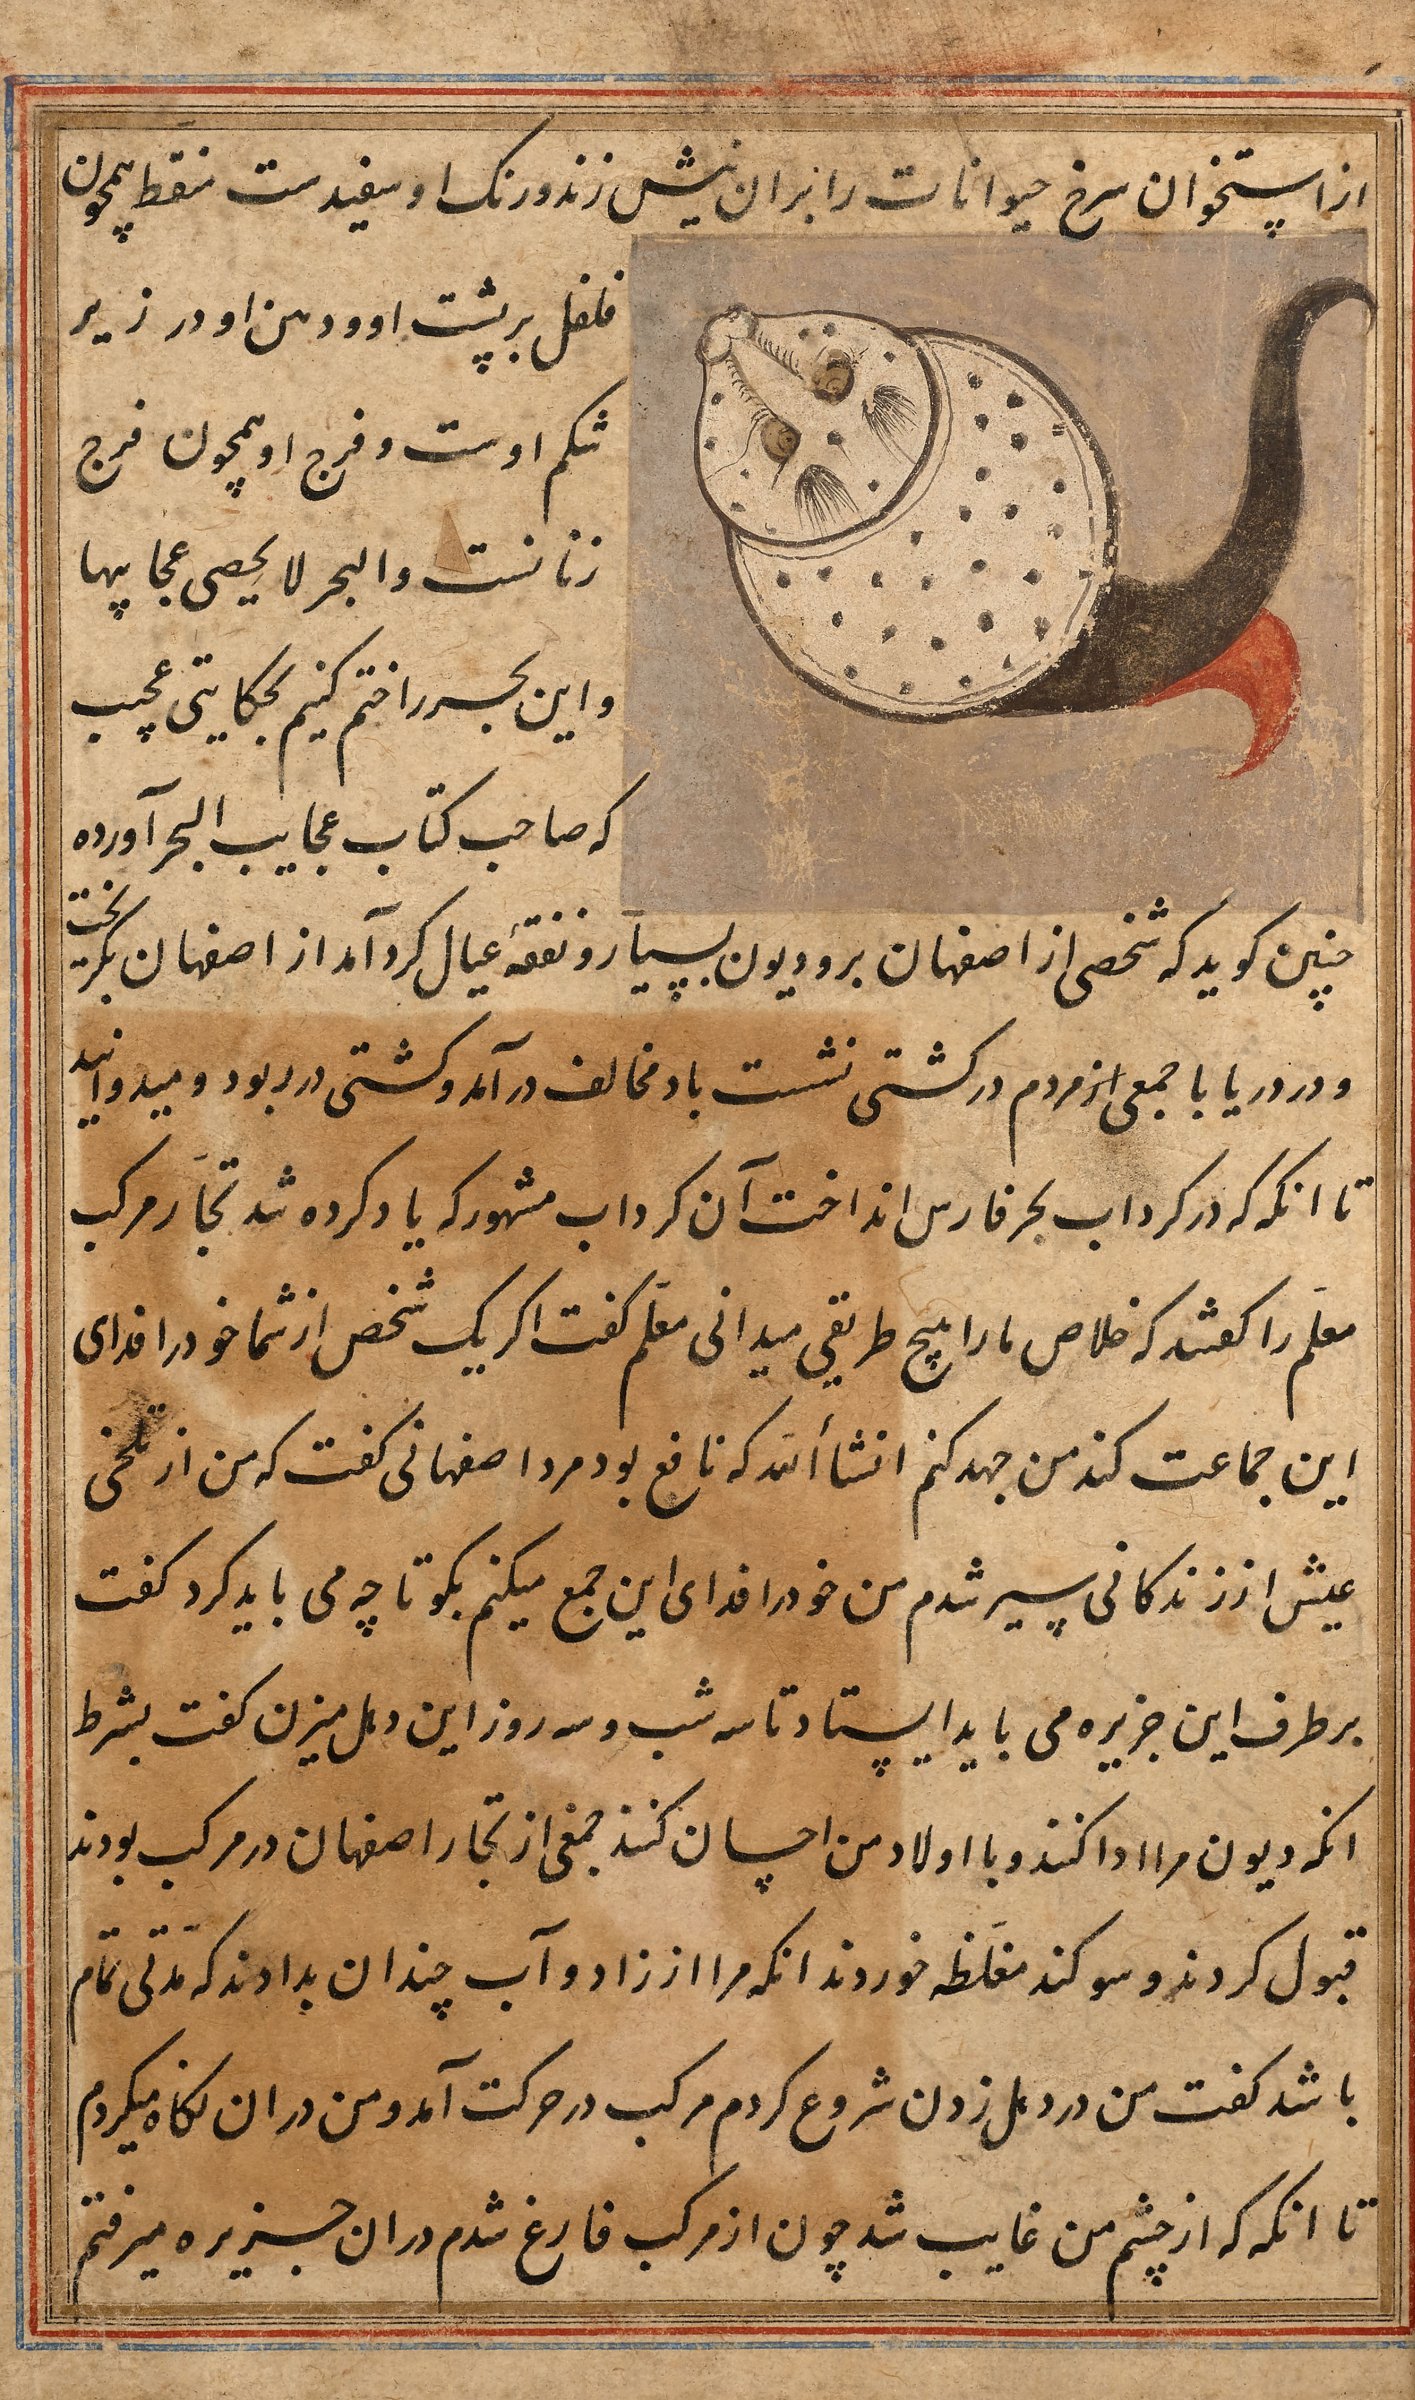 از استخوان سرخ حیوانات را بران نیش زند ورنک او سفیدست منقّط همچون
فلفل بر پشت او ودهن او در زیر
شکم اوست و فرج او همچون فرج
زنانست والبحر لا یحصی عجایبها
واین بحر را ختم کنیم بحکایتی عجیب
که صاحب کتاب عجایب البحر آورده
چنین کوید که شخصی از اصفهان برو دیون بسیار ونفقهٔ عیال کرد آمد از اصفهان بکریخت
ودر دریا با جمعی از مردم در کشتی نشست باد مخالف در آمد وکشتی در ربود ومیدوانید
تا انکه که در کرداب بحر فارس انداخت آن کرداب مشهور که یاد کرده شد تجّار مرکب
معلّم را کفتند که خلاص ما را هیچ طریقی میدانی معلّم کفت اکر یک شخص از شما خود را فدای
این جماعت کند من جهد کنم انشأالله که نافع بود مرد اصفهانی کفت که من از تلخی
عیش از زندکانی سیر شدم من خود را فدای این جمع میکنم بکو تا چه می باید کرد کفت
بر طرف این جزیره می باید ایستاد تا سه شب وسه روز این دهل میزن کفت بشرط
انکه دیون مرا ادا کنند وبا اولاد من احسان کنند جمعی از تجّار اصفهان در مرکب بودند
قبول کردند وسوکند مغلّظه خوردند انکه مرا از زاد وآب چندان بدادند که مدّتی تمام
باشد کفت من در دهل زدن شروع کردم مرکب در حرکت آمد ومن دران نکاه میکردم
تا انکه که از چشم من غایب شد چون از مرکب فارغ شدم دران جزیره میرفتم